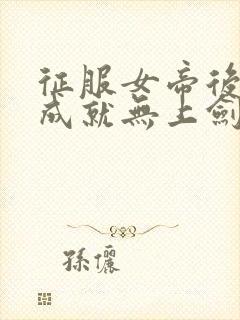 征服女帝後
成就無上劍
孫儷